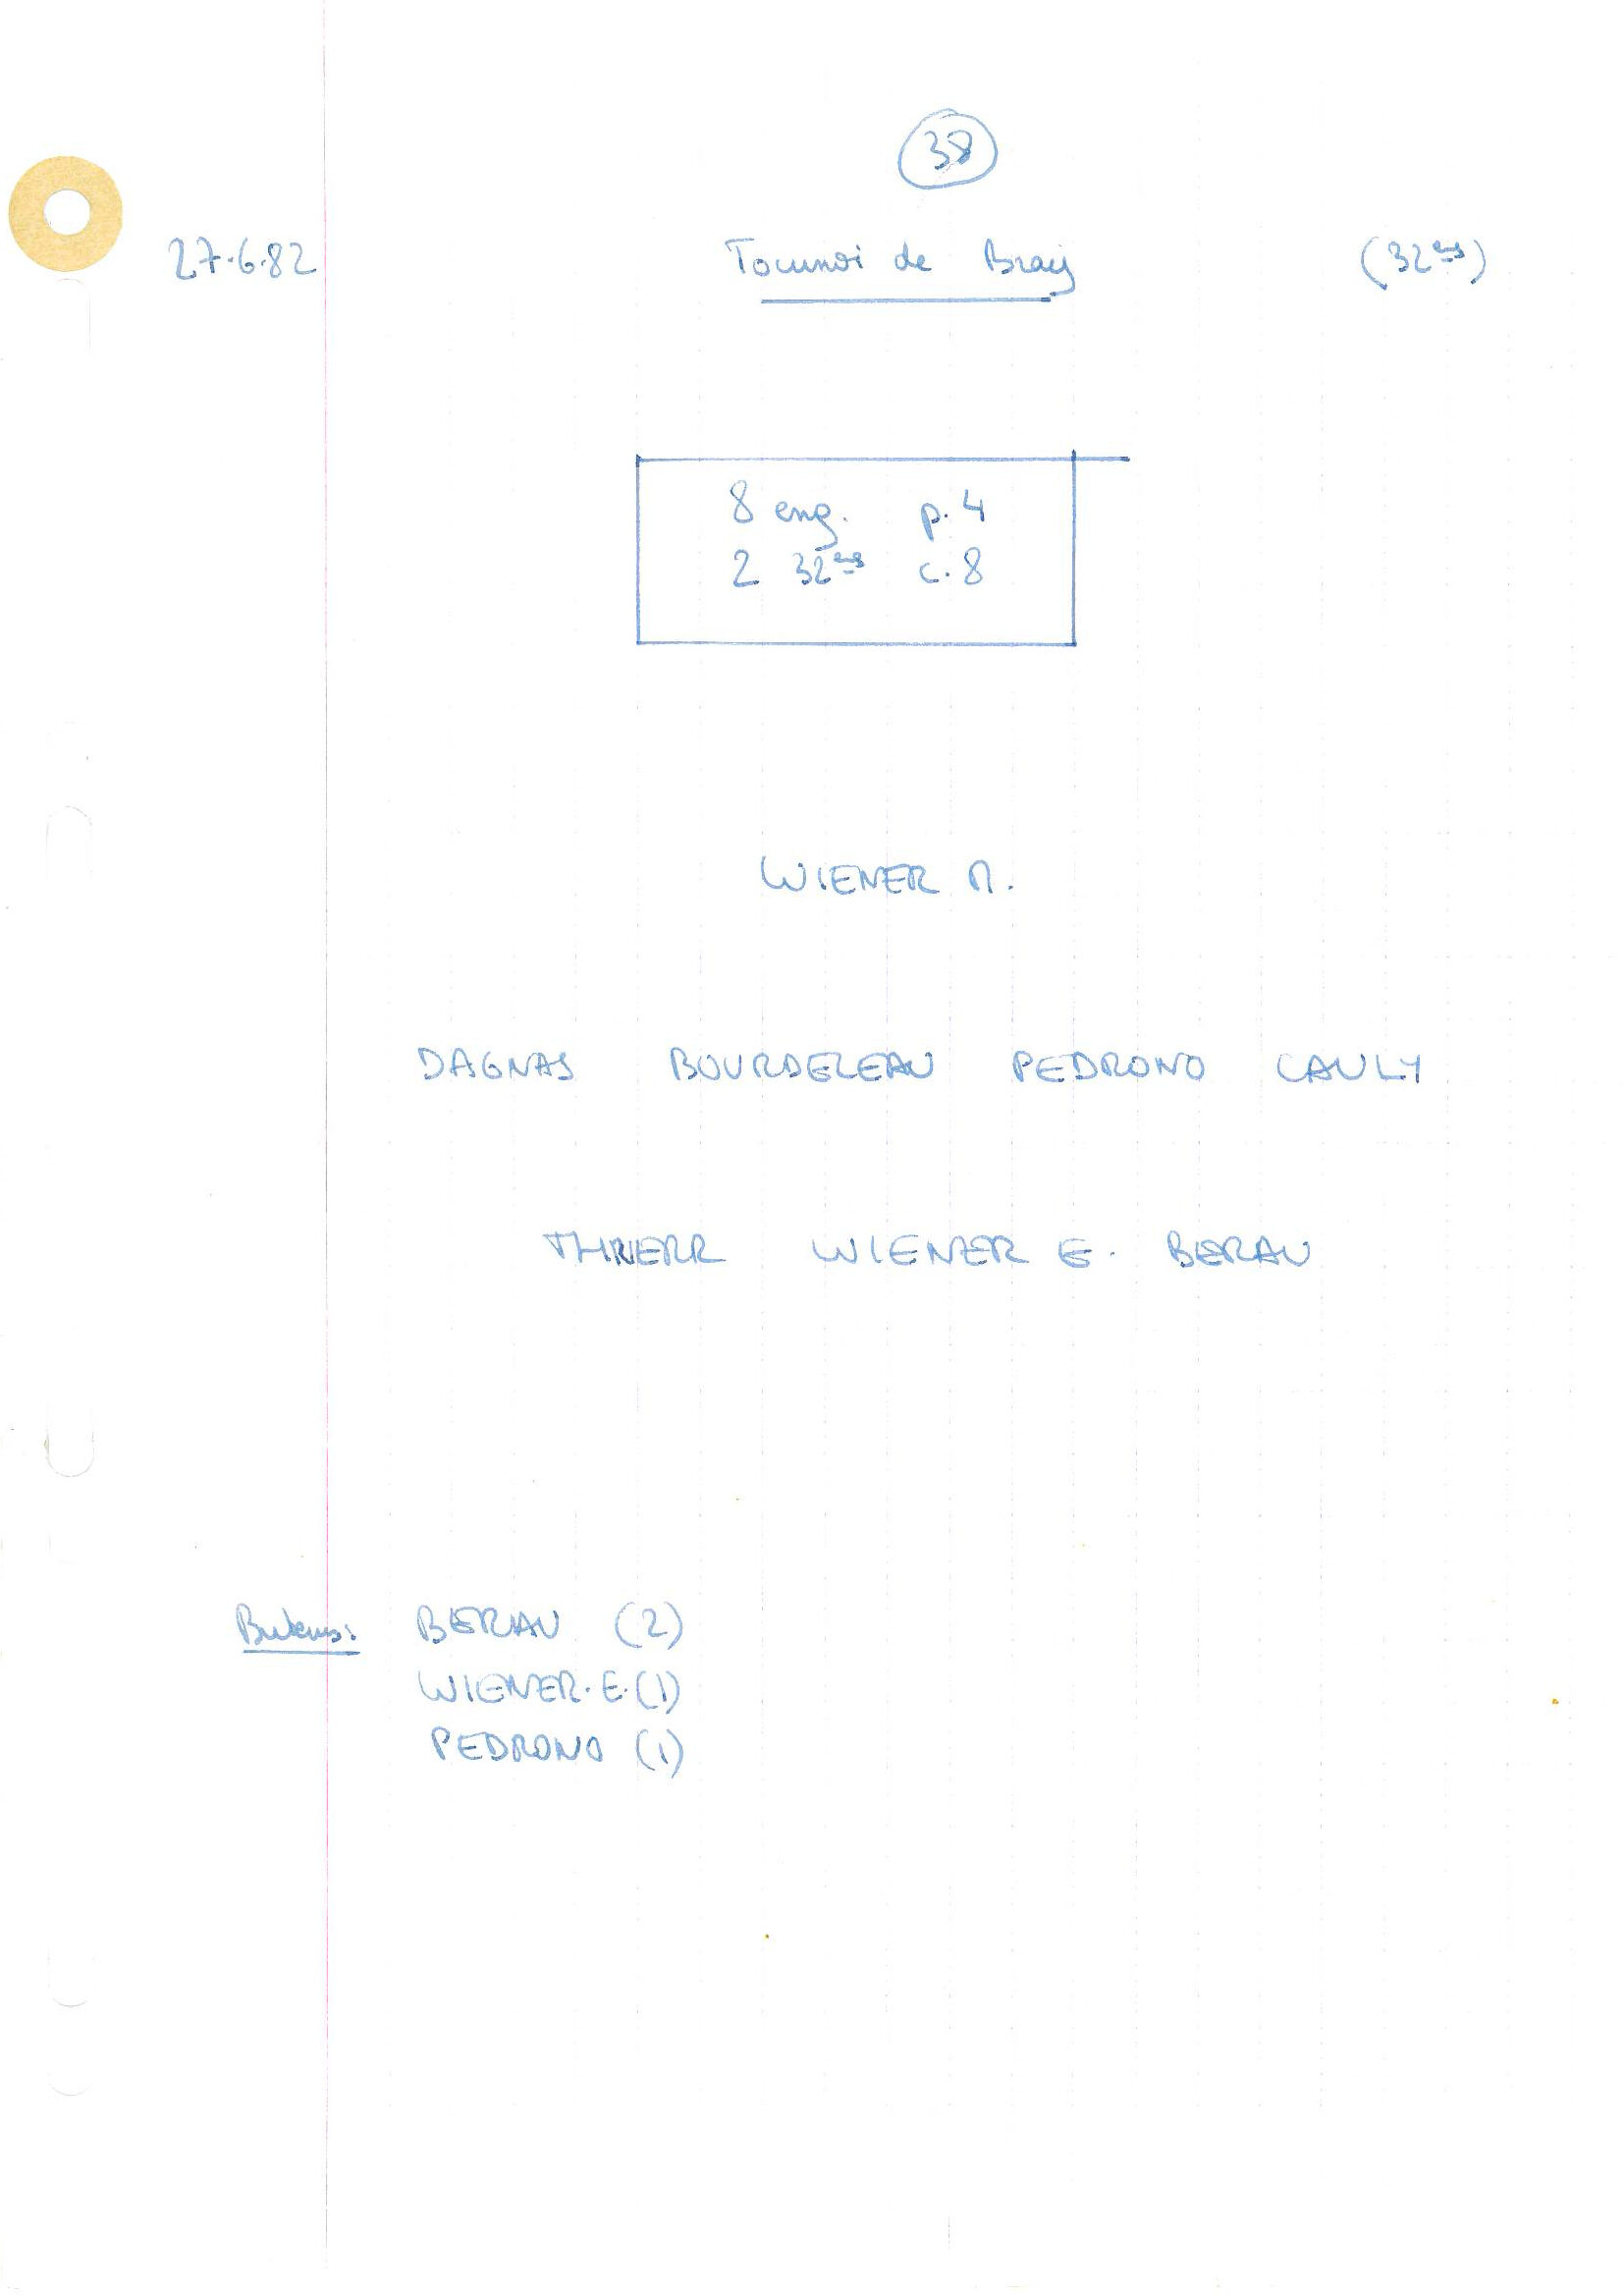 38
27.6.82 Tournoi de Bray (32ème)
8 eng. p. 4
2 32èmes c. 8
WIENER M.
DAGNAS BOURDELEAU PEDRONO CAULY
WIENER E. BERAU
Buteurs: BERAU (2)
WIENER. E. (1)
PEDRONO (1)